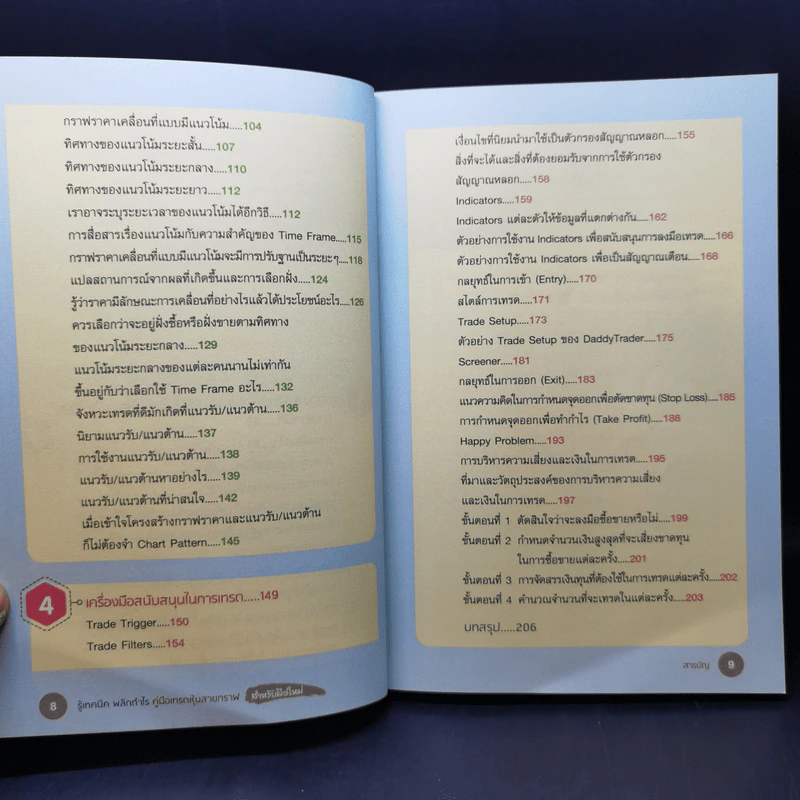 กราฟราคาเคลื่อนที่แบบมีแนวโน้ม.....104
ทิศทางของแนวโน้มระยะสั้น.....107
ทิศทางของแนวโน้มระยะกลาง.....110
ทิศทางของแนวโน้มระยะยาว.....112
เราอาจระบุระยะเวลาของแนวโน้มได้อีกวิธี.....112
การสื่อสารเรื่องแนวโน้มกับความสำคัญของ Time Frame.....115
กราฟราคาเคลื่อนที่แบบมีแนวโน้มจะมีการปรับฐานเป็นระยะๆ.....118
แปลสถานการณ์จากผลที่เกิดขึ้นและการเลือกฝั่ง.....124
รู้ว่าราคามีลักษณะการเคลื่อนที่อย่างไรแล้วได้ประโยชน์อะไร.....126
ควรเลือกว่าจะอยู่ฝั่งซื้อหรือฝั่งขายตามทิศทาง
ของแนวโน้มระยะกลาง.....129
แนวโน้มระยะกลางของแต่ละคนนานไม่เท่ากัน
ขึ้นอยู่กับว่าเลือกใช้ Time Frame อะไร.....132
จังหวะเทรดที่ดีมักเกิดที่แนวรับ/แนวต้าน.....136
นิยามแนวรับ/แนวต้าน.....137
การใช้งานแนวรับ/แนวต้าน.....138
แนวรับ/แนวต้านหาอย่างไร.....139
แนวรับ/แนวต้านที่น่าสนใจ.....142
เมื่อเข้าใจโครงสร้างกราฟราคาและแนวรับ/แนวต้าน
ก็ไม่ต้องจำ Chart Pattern.....145
4 เครื่องมือสนับสนุนในการเทรด.....149
Trade Trigger.....150
Trade Filters.....154
8 รู้เทคนิค พลิกกำไร คู่มือเทรดหุ้นสายกราฟ สำหรับมือใหม่
เงื่อนไขที่นิยมนำมาใช้เป็นตัวกรองสัญญาณหลอก.....155
สิ่งที่จะได้และสิ่งที่ต้องยอมรับจากการใช้ตัวกรอง
สัญญาณหลอก.....158
Indicators.....159
Indicators แต่ละตัวให้ข้อมูลที่แตกต่างกัน.....162
ตัวอย่างการใช้งาน Indicators เพื่อสนับสนุนการลงมือเทรด.....166
ตัวอย่างการใช้งาน Indicators เพื่อเป็นสัญญาณเตือน.....168
กลยุทธ์ในการเข้า (Entry).....170
สไตล์การเทรด.....171
Trade Setup.....173
ตัวอย่าง Trade Setup ของ DaddyTrader.....175
Screener.....181
กลยุทธ์ในการออก (Exit).....183
แนวความคิดในการกำหนดจุดออกเพื่อตัดขาดทุน (Stop Loss).....185
การกำหนดจุดออกเพื่อทำกำไร (Take Profit).....188
Happy Problem.....193
การบริหารความเสี่ยงและเงินในการเทรด.....195
ที่มาและวัตถุประสงค์ของการบริหารความเสี่ยง
และเงินในการเทรด.....197
ขั้นตอนที่ 1 ตัดสินใจว่าจะลงมือซื้อขายหรือไม่.....199
ขั้นตอนที่ 2 กำหนดจำนวนเงินสูงสุดที่จะเสี่ยงขาดทุน
ในการซื้อขายแต่ละครั้ง.....201
ขั้นตอนที่ 3 การจัดสรรเงินทุนที่ต้องใช้ในการเทรดแต่ละครั้ง.....202
ขั้นตอนที่ 4 คำนวณจำนวนที่จะเทรดในแต่ละครั้ง.....203
บทสรุป.....206
สารบัญ 9